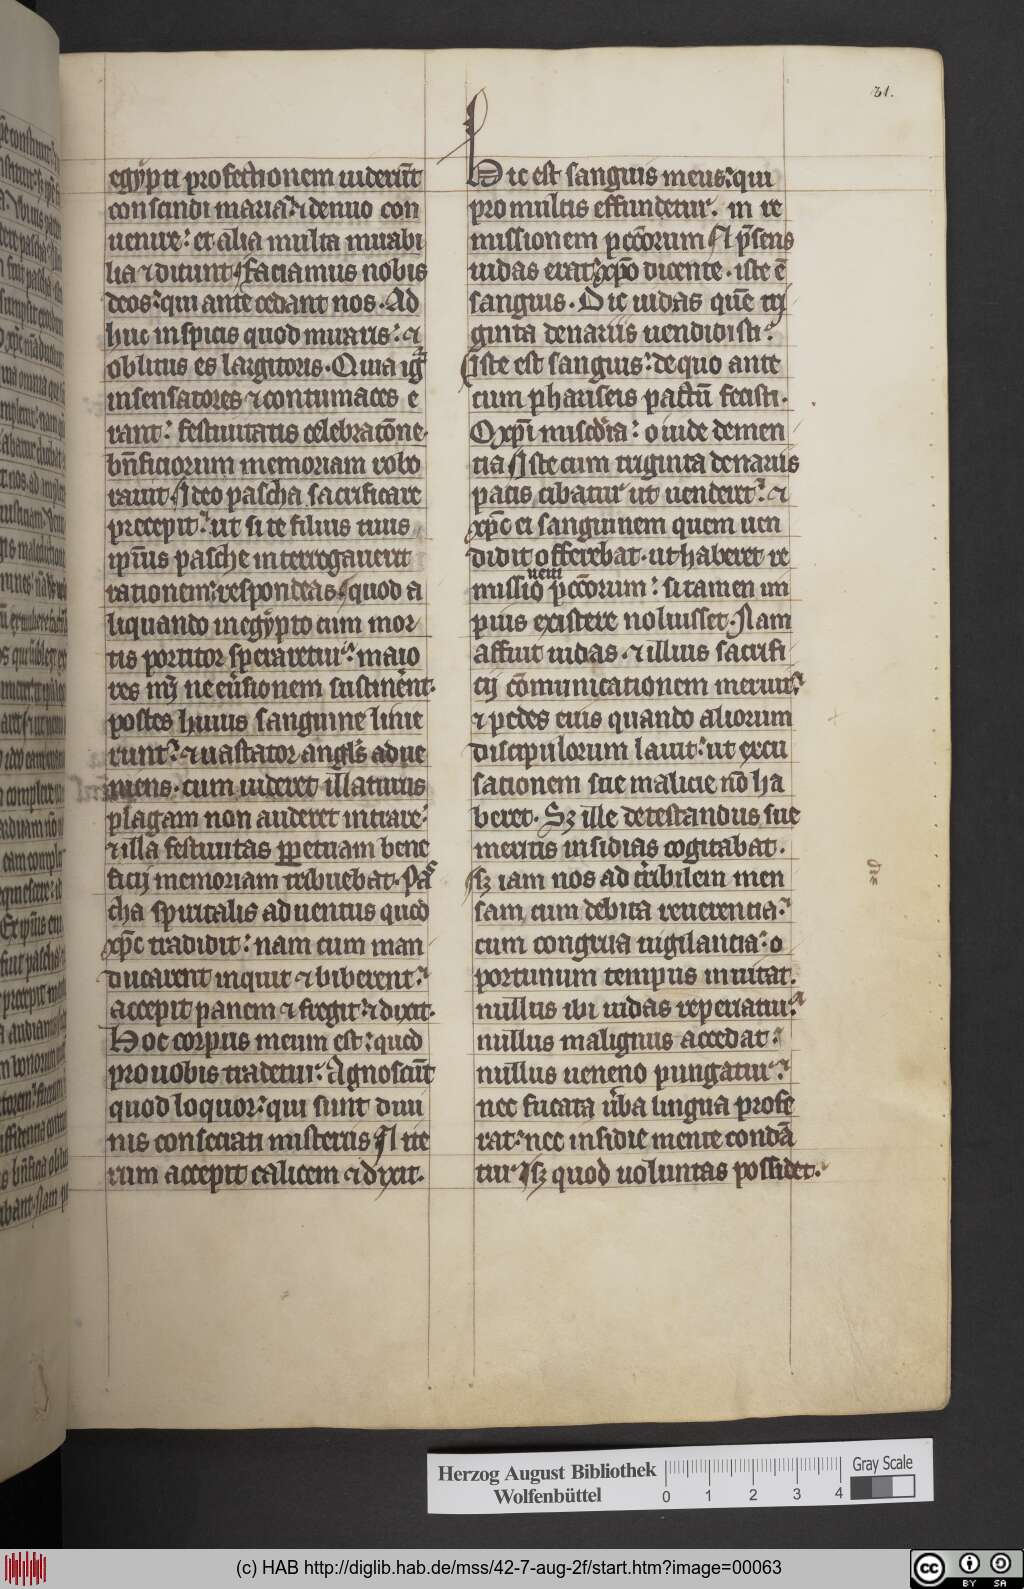 31.
egypti profectionem uiderūt
conscindi maria: ⁊ denuo con
uenire: et alia multa mirabi
lia ⁊ dicunt faciamus nobis
deos: qui ante cedant nos. Ad
huc inspicis quod miraris: ⁊
oblitus es largitoris. Quia igr̄
insensatores ⁊ contumaces e
rant: festiuitatis celebracōne
bn̄ficiorum memoriam robo
rauit. Ideo pascha sacrificare
precepit: ut si te filius tuus
ip̄ius pasche interrogauerit
rationem: respondeas. quod a
liquando in egypto cum mor
tis portitor speraretur: maio
res
postes huius sanguine linie
runt: ⁊ uastator angl̄s adue
niens. cum uideret illaturus
plagam non auderet intrare:
⁊ illa festiuitas ꝑpetuam bene
ficij memoriam tribuebat. Pas
cha spiritalis aduentus quod
xp̄c tradidit: nam cum man
ducarent inquit ⁊ biberent:
accepit panem ⁊ fregit: ⁊ dixit.
Hoc corpus meum est: quod
pro uobis tradetur. Agnoscūt
quod loquor: qui sunt diui
nis consecrati misteriis. Ite
rum accepit calicem ⁊ dixit.
Hic est sanguis meus: qui
pro multis effundetur. in re
missionem pccōrum. Et p̄sens
iudas erat: xp̄o dicente. iste ē
sanguis. Dic iudas quē trij
ginta denariis uendidisti:
Iste est sanguis: de quo ante
cum phariseis pactū fecisti.
O xp̄i misc̄dia: o iude demen
tia. Iste cum triginta denariis
pacis cibatur ut uenderet: ⁊
xp̄c ei sanguinem quem uen
didit offerebat. ut haberet re
missio pccōrum: si tamen im
nem
pius existere noluisset. Nam
affuit iudas. ⁊ illius sacrifi
cij cōmunicationem meruit:
⁊ pedes eius quando aliorum
discipulorum lauit: ut excu
sationem sue malicie nō ha
beret. Sꝫ ille detestandus sue
mentis insidias cogitabat.
Sꝫ iam nos ad t̄ribilem men
sam cum debita reuerentia:
cum congrua uigilantia: o
portunum tempus inuitat.
nullus ibi iudas reperiatur:
nullus malignus accedat:
nullus ueneno pungatur:
nec fucata ūba lingua profe
rat: nec insidie mente condā
tur. Sꝫ quod uoluntas possidet.
Herzog August Bibliothek
Wolfenbüttel
0 1 2 3 4
Gray Scale
(c) HAB http://diglib.hab.de/mss/42-7-aug-2f/start.htm?image=00063
cc BY SA